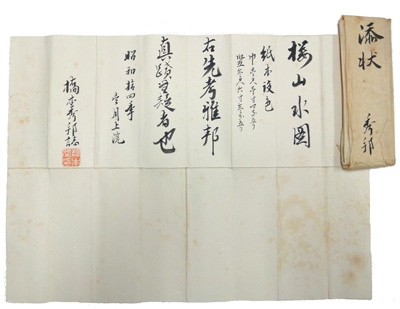 添状
秀邦
山水図
紙本設色
右先考雅邦
真蹟無疑者也
昭和拾四年
月上浣
橋本秀邦誌